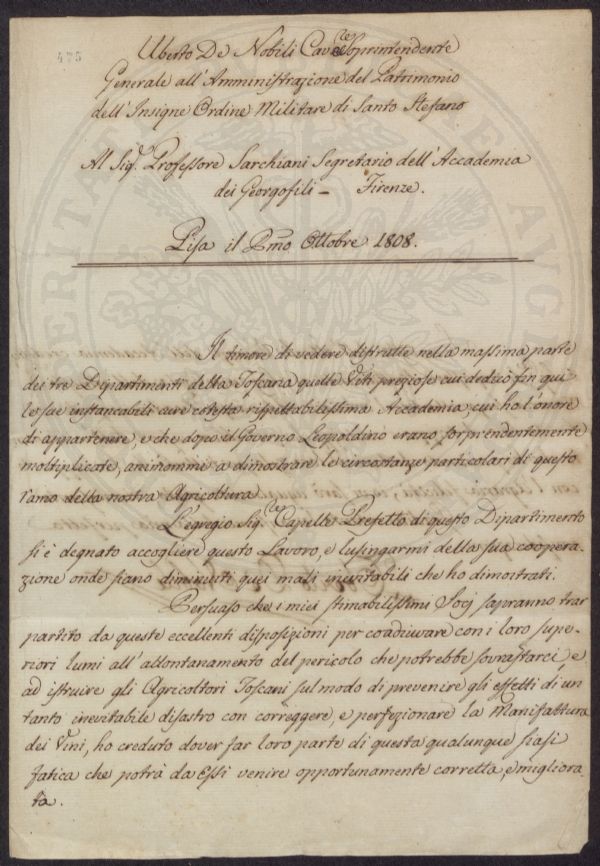 475
Uberto De Nobili Cav.re Soprintendente
Generale all'Amministrazione del Patrimonio
dell'Insigne Ordine Militare di Santo Stefano
Al Sig.r Professore Sarchiani Segretario dell'Accademia
dei Georgofili - Firenze.
Pisa il Pmo Ottobre 1808.
Il timore di vedere distrutte nella massima parte
dei tre Dipartimenti della Toscana quelle Viti preziose cui dedicò fin qui
le sue instancabili cure cotesta rispettabilissima Accademia, cui ho l'onore
di appartenere, e che dopo il Governo Leopoldino erano sorprendentemente
moltiplicate, animommi a dimostrare le circostanze particolari di questo
ramo della nostra Agricoltura.
L'egregio Sig.re Capelle Prefetto di questo Dipartimento
si è degnato accogliere questo Lavoro, e lusingarmi della sua coopera-
zione onde siano diminuiti quei mali inevitabili che ho dimostrati.
Persuaso che i miei stimabilissimi Socj sapranno trar
partito da queste eccellenti disposizioni per coadiuvare con i loro supe-
riori lumi all'allontanamento del pericolo che potrebbe sovrastarci, e
ad istruire gli Agricoltori Toscani sul modo di prevenire gli effetti d'un
tanto inevitabile disastro con correggere, e perfezionare la Manifattura
dei Vini, ho creduto dover far loro parte di questa qualunque siasi
fatica che potrà da Essi venire opportunamente corretta, e migliora
ta.